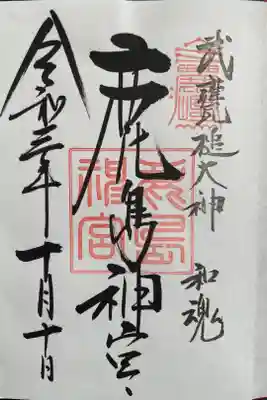 武甕槌大神 和魂
鹿島神宮
令和三年十月十日
鹿島神宮